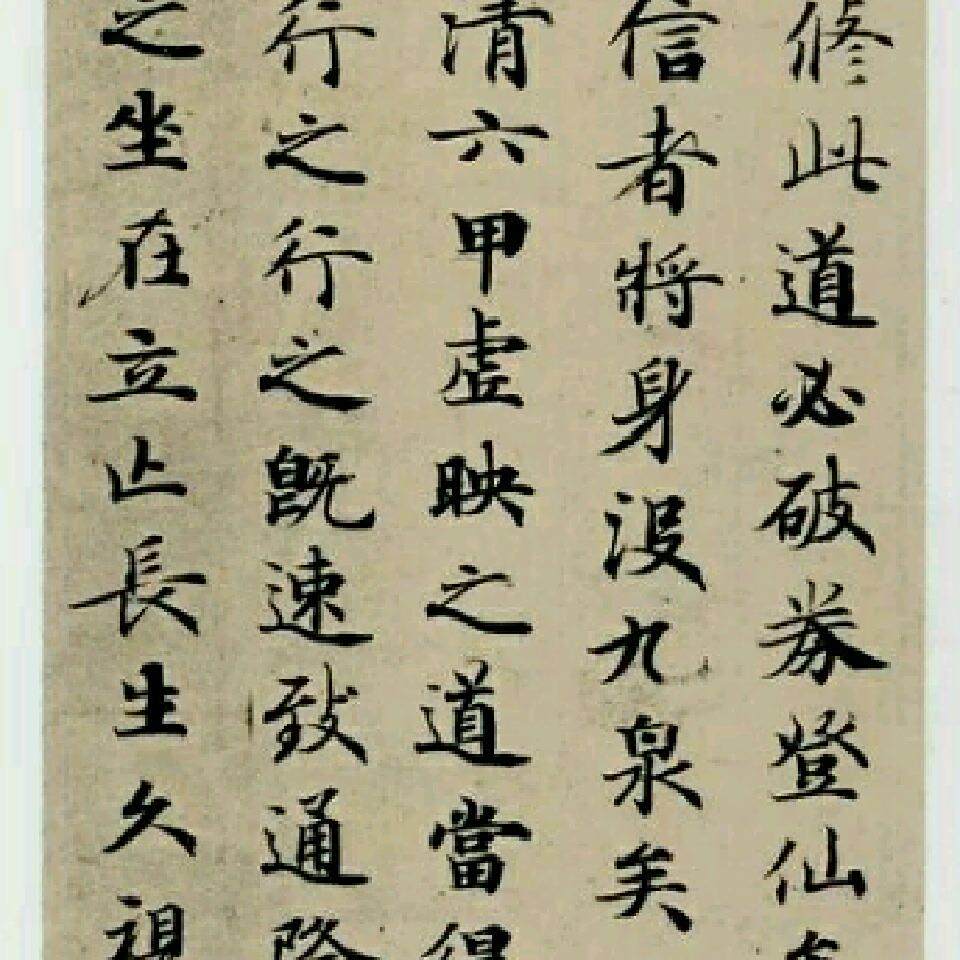 修此道必破券登仙
信者將身沒九泉矣
清六甲虛映之道當得
行之行之既速致通降
之坐在立亾長生久視